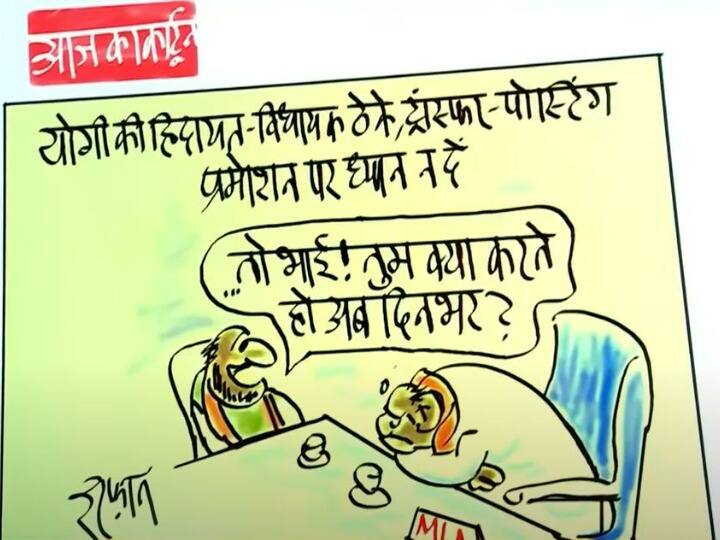 आज का कार्टून
योगी की हिदायत-विधायक ठेके, ट्रांसफर-पोस्टिंग
प्रमोशन पर ध्यान न दें
...तो भाई! तुम क्या करते
हो अब दिनभर?
इरफ़ान
MLA